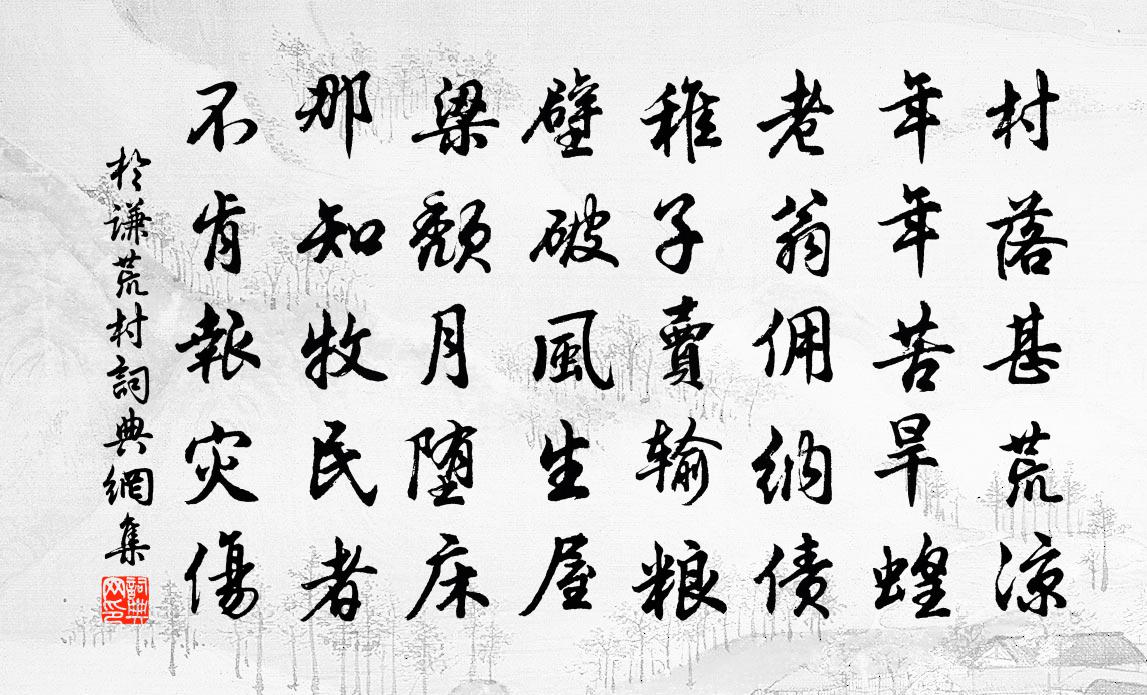 村落甚荒涼
年年苦旱蝗
老翁佣納債
稚子賣输粮
壁破風生屋
梁颓月堕床
那知牧民者
不肯報灾傷
於谦荒村詞典網集
詞典